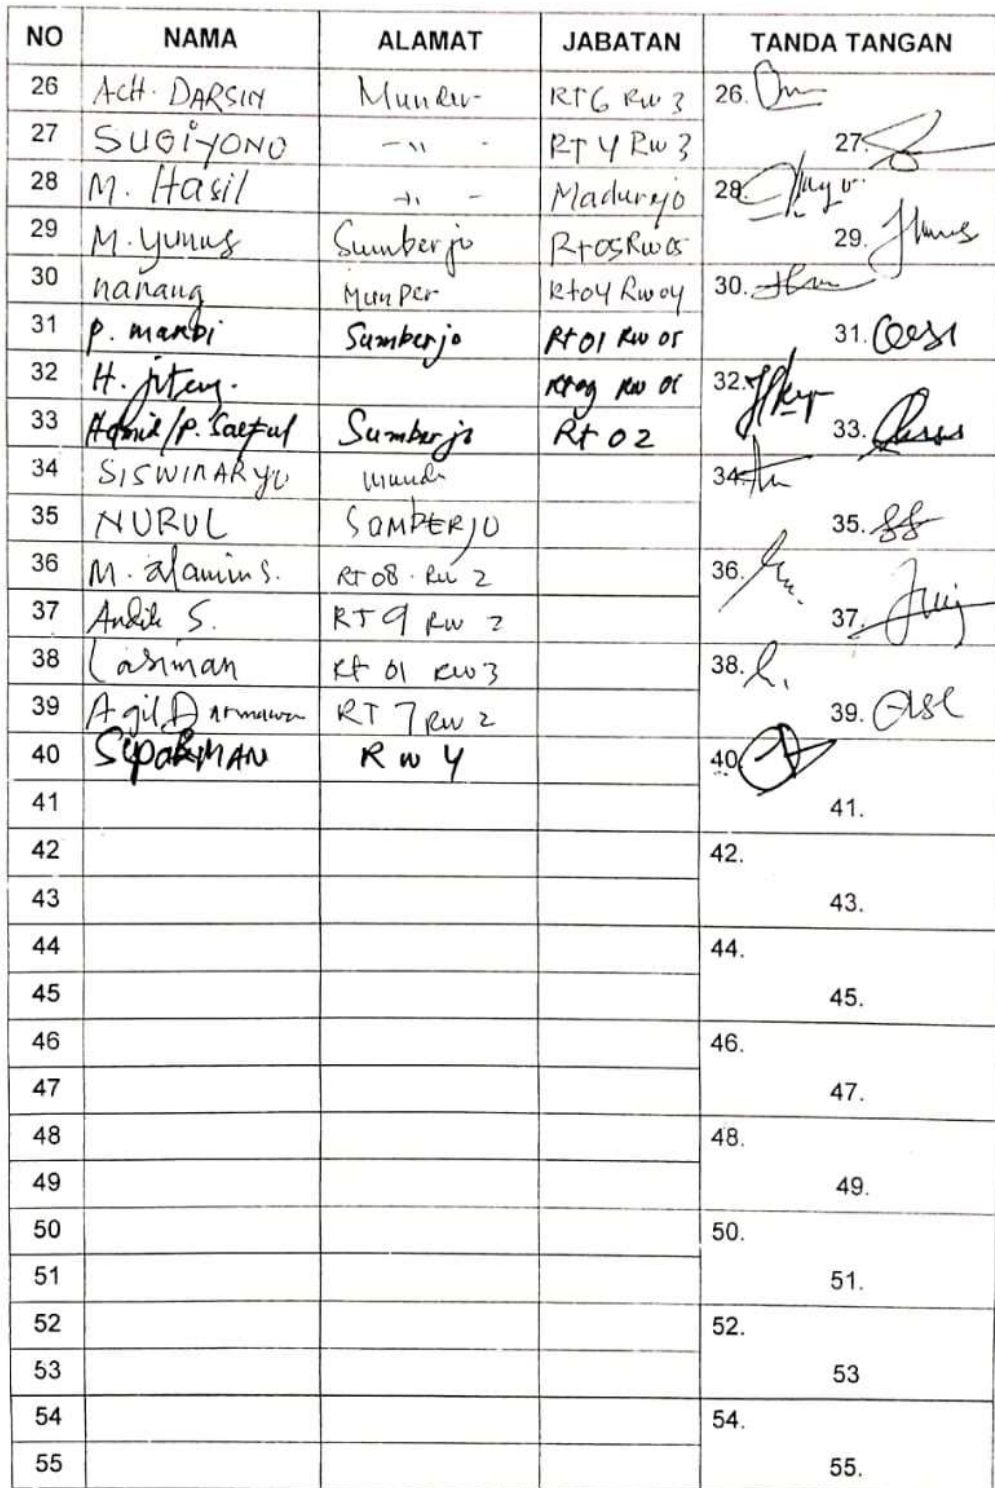 NO NAMA ALAMAT JABATAN TANDA TANGAN
26 ACH. DARSIN Munder RT6 RW 3 26.
27 SUGIYONO -"- RT 4 RW 3 27.
28 M. Hasil -"- Madurejo 28.
29 M. Yunus Sumberjo Rt05 Rw05 29.
30 nanang Munder Rt04 Rw04 30.
31 P. marbi Sumberjo Rt 01 Rw 05 31.
32 H. jiteng. Rw 01 32.
33 P. Saeful Sumberjo Rt 02 33.
34 SISWINARYO 34.
35 NURUL SUMBERJO 35.
36 M. alamin S. RT 08. RW 2 36.
37 Andik S. RT 9 RW 2 37.
38 Lasiman Rt 01 RW 3 38.
39 Agil Darmawan RT 7 RW 2 39.
40 SUPARMAN RW 4 40
41 41.
42 42.
43 43.
44 44.
45 45.
46 46.
47 47.
48 48.
49 49.
50 50.
51 51.
52 52.
53 53
54 54.
55 55.